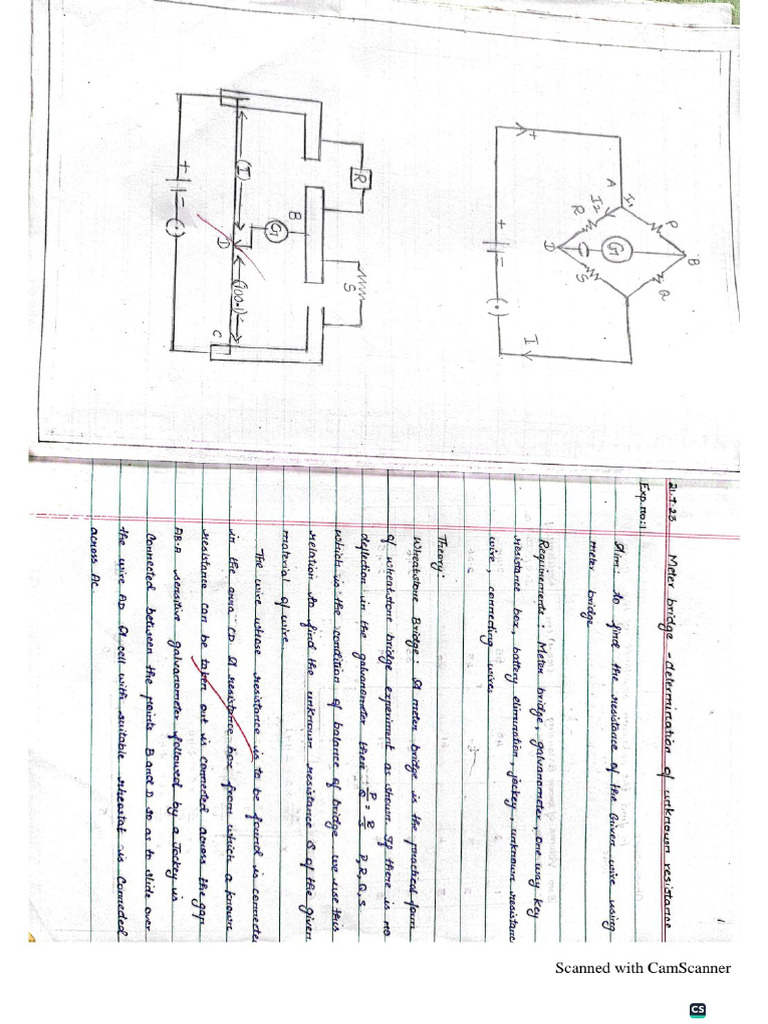 21.7.23 Meter bridge - determination of unknown resistance
1
Exp.no:1
Aim: To find the resistance of the Given wire using
meter bridge
Requirements: Meter bridge, galvanometer, one way key
resistance box, battery elimination, jockey, unknown resistance
wire, connecting wires.
Theory:
Wheatstone Bridge: A meter bridge is the practical form
of wheatstone bridge experiment as shown. If there is no
deflection in the galvanometer then P/Q = R/S P, R, Q, S
which is the condition of balance of bridge we use this
relation to find the unknown resistance S of the given
material of wire.
The wire whose resistance is to be found is connected
in the arm CD A resistance box from which a known
resistance can be taken out is connected across the gap
AB. A sensitive galvanometer followed by a Jockey is
Connected between the points B and D so as to slide over
the wire AD A cell with suitable rheostat is connected
across AC.
B
P
Q
A
I₁
I₂
G
R
S
D
+
+
-
(·)
I
R
S
B
G
(l)
D
(100-l)
C
+
-
(·)
Scanned with CamScanner
CS